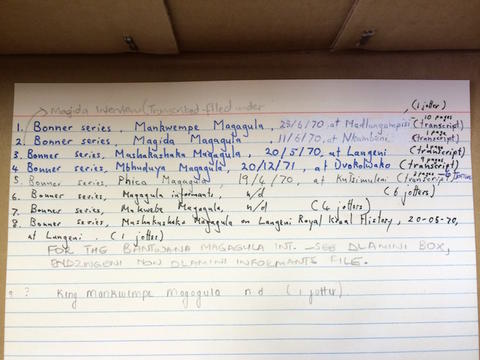 Magida Interview (Transcribed - filed under
(1 jotter)
1. Bonner series, Mankwempe Magagula, 23/6/70, at Madlangampisi (transcript) 10 pages
2. Bonner series, Magida Magagula 11/6/70, at (transcript)
3. Bonner series, Mashakashaka Magagula, 20/5/70, at Langeni (transcript)
4 Bonner series, Mbhuduya Magagula, 20/12/71, at Dvokolwako (transcript) 9 pages
5 Bonner series, Phica Magagula 19/4/70, at Kutsimuleni (transcript)
6. Bonner series, Magagula informants, n/d (6 jotters)
7. Bonner series, Makwebe Magagula, n/d (4 jotters)
8. Bonner series, Mashakashaka Magagula on Langeni Royal Kraal History, 20-05-70,
at Langeni (1 jotters)
FOR THE BANTWANA MAGAGULA INT. - SEE DLAMINI BOX,
ENDZINGENI NON DLAMINI INFORMANTS FILE.
9 ? King Mankwempe Magagula n.d (1 jotter)